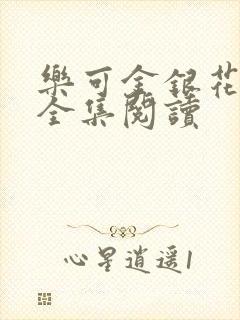 樂可金銀花
全集閱讀
心星逍遥1